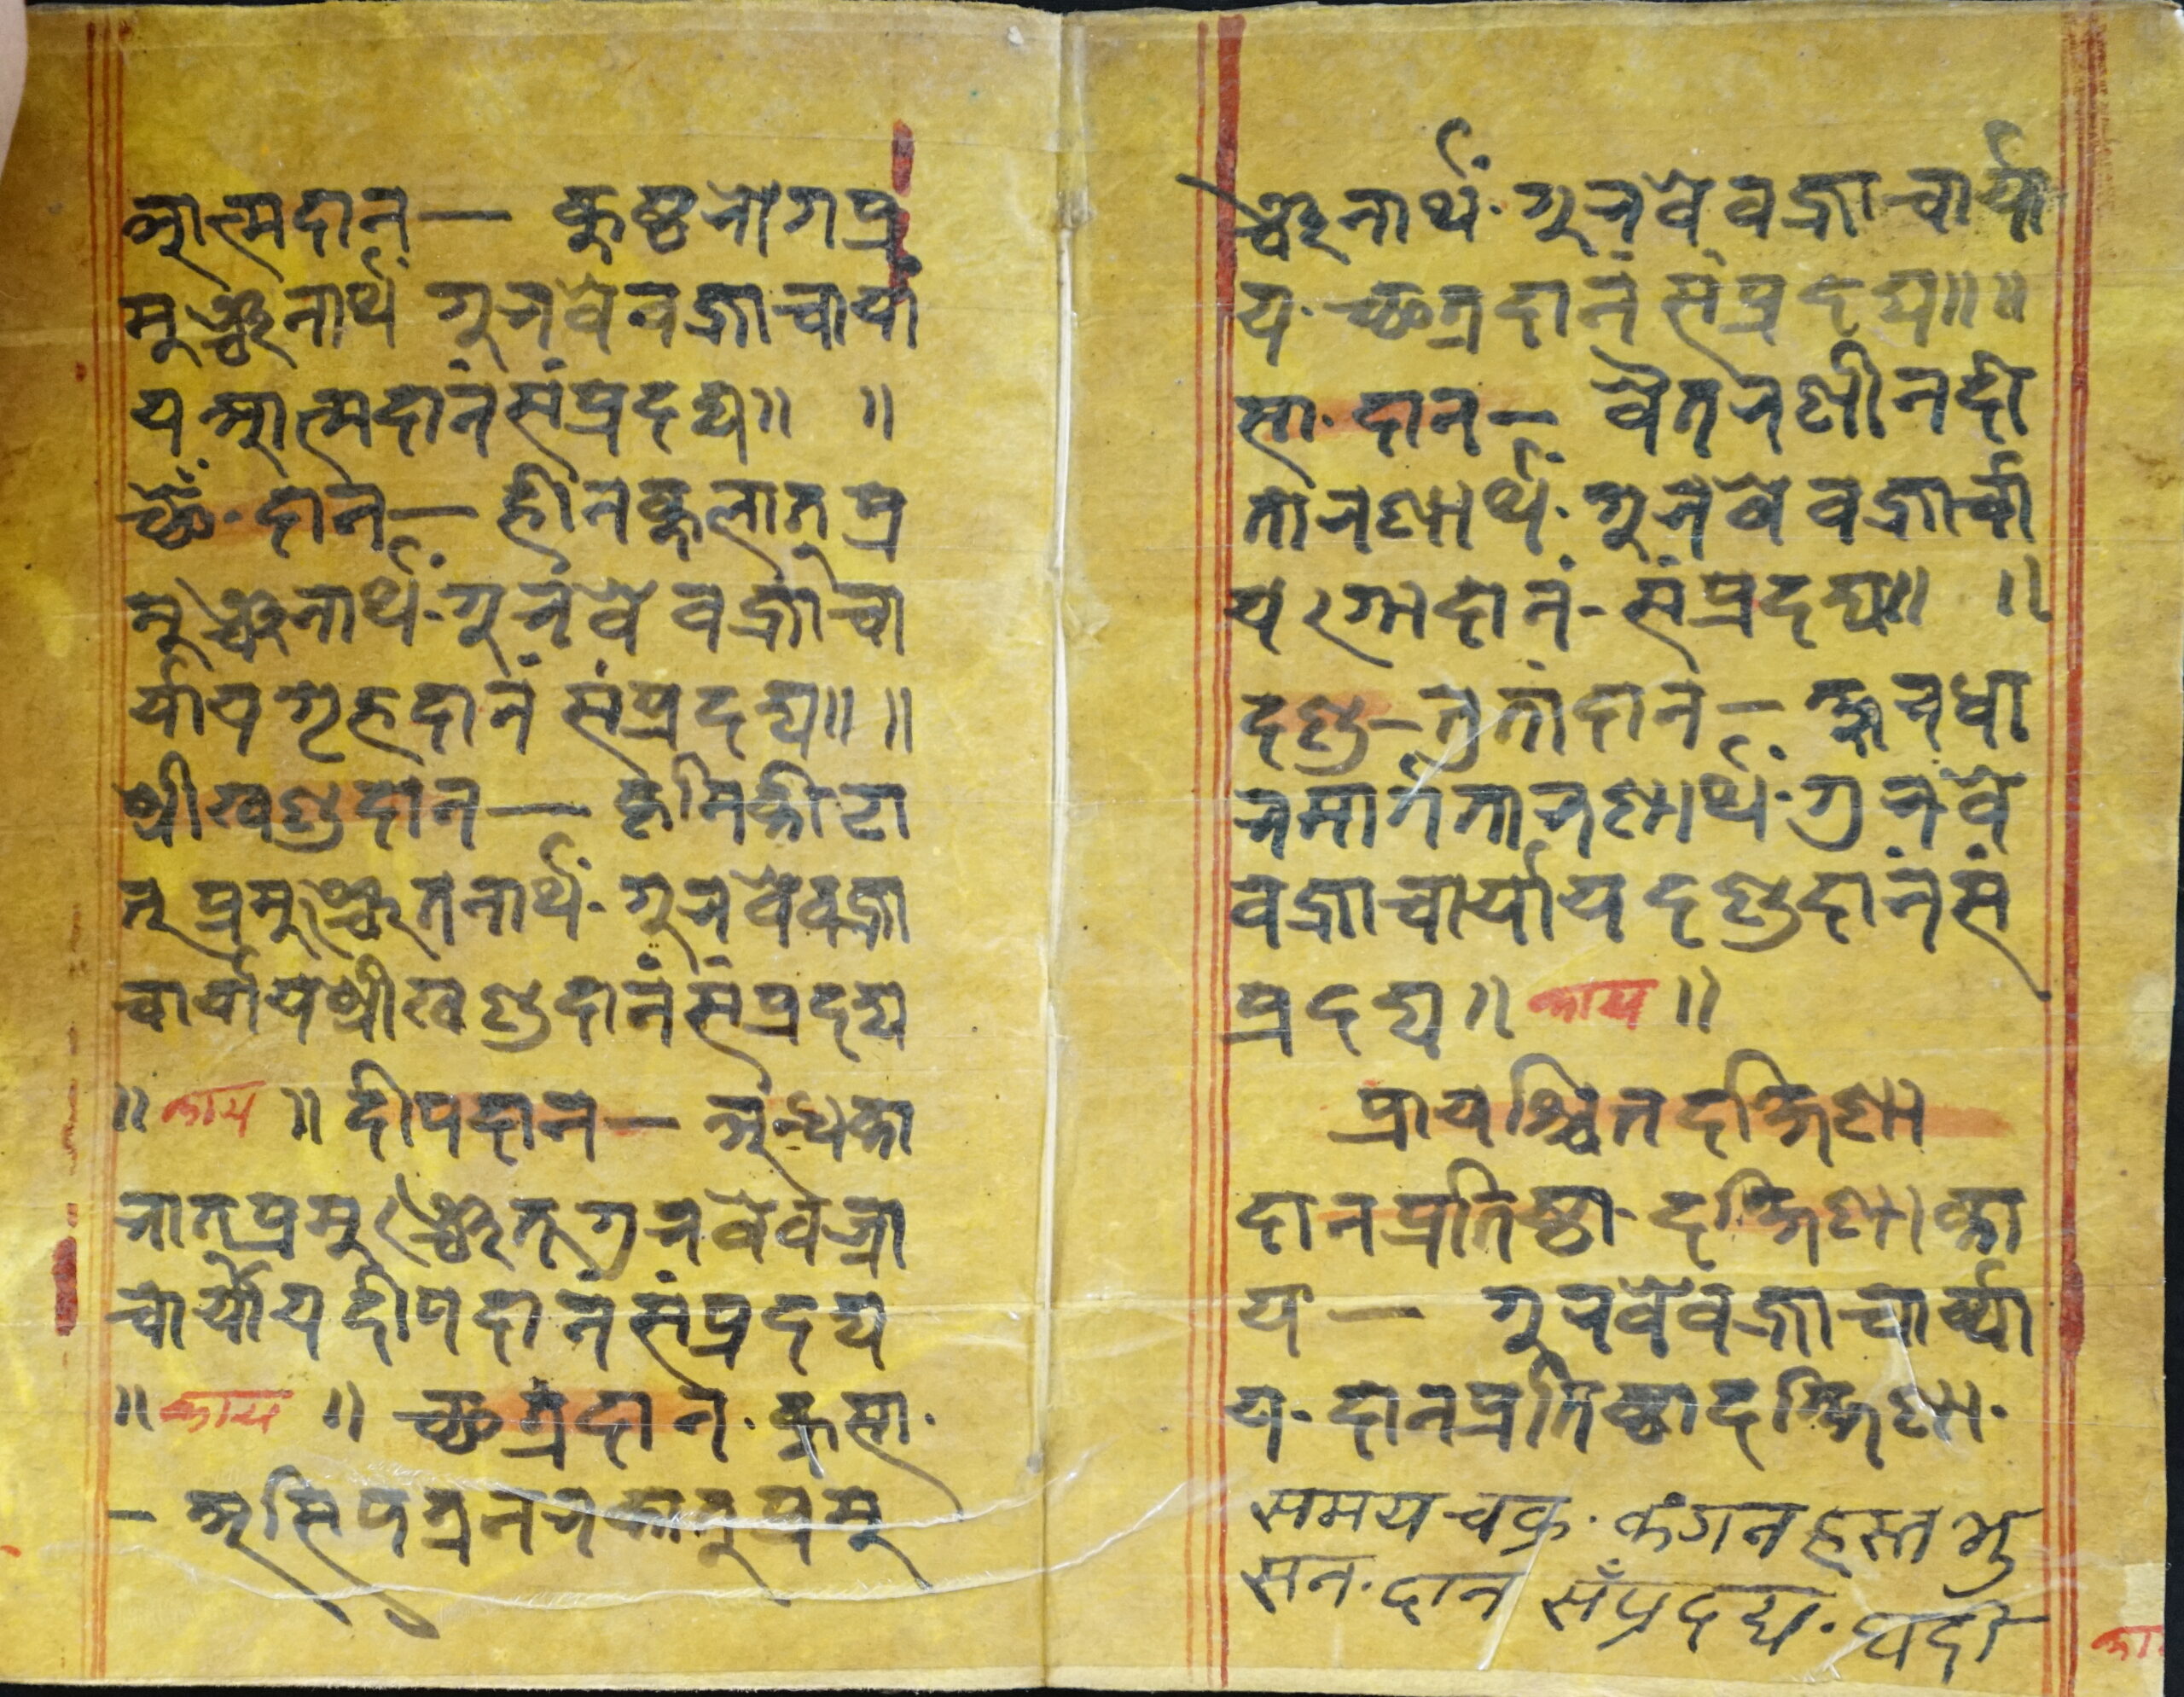 आत्मदान — कुष्ठरोगप्र
मुञ्चनार्थं गुरवे वज्राचार्या
य आत्मदानं संप्रदद्य॥ ॥
छेँ·दान — हीनकुलात् प्र
मुञ्चनार्थं·गुरवे वज्राचा
र्याय गृहदानं संप्रदद्य॥ ॥
श्रीखण्डदान — कृमिकीटा
त् प्रमुञ्चतनार्थं·गुरवे वज्रा
चार्याय श्रीखण्डदानं संप्रदद्य
॥ काय ॥ दीपदान — अन्धका
रात् प्रमुञ्चत् गुरवे वज्रा
चार्याय दीपदानं संप्रदद्य
॥ काय ॥ छत्रदान·कुसा·
– असिपत्रनरकात् प्रमु
ञ्चनार्थं·गुरवे वज्राचार्या
य·छत्रदानं संप्रदद्य॥ ॥
सा·दान — वैतरणी नदी
तारणार्थं·गुरवे वज्राचा
य गादानं-संप्रदद्य॥ ॥
दण्ड–तुतांदान – क्षुरधा
रमार्गतारणार्थं·गुरवे
वज्राचार्याय दण्डदानं सं
प्रदद्य॥ काय ॥
प्रायश्चित दक्षिणा
दानप्रतिष्ठा-दक्षिणा का
य — गुरवे वज्राचार्य्या
य·दानप्रतिष्ठा दक्षिणा·
समय चक्र·कंगन हस्त भु
सन·दान सँप्रदद्य·यदी